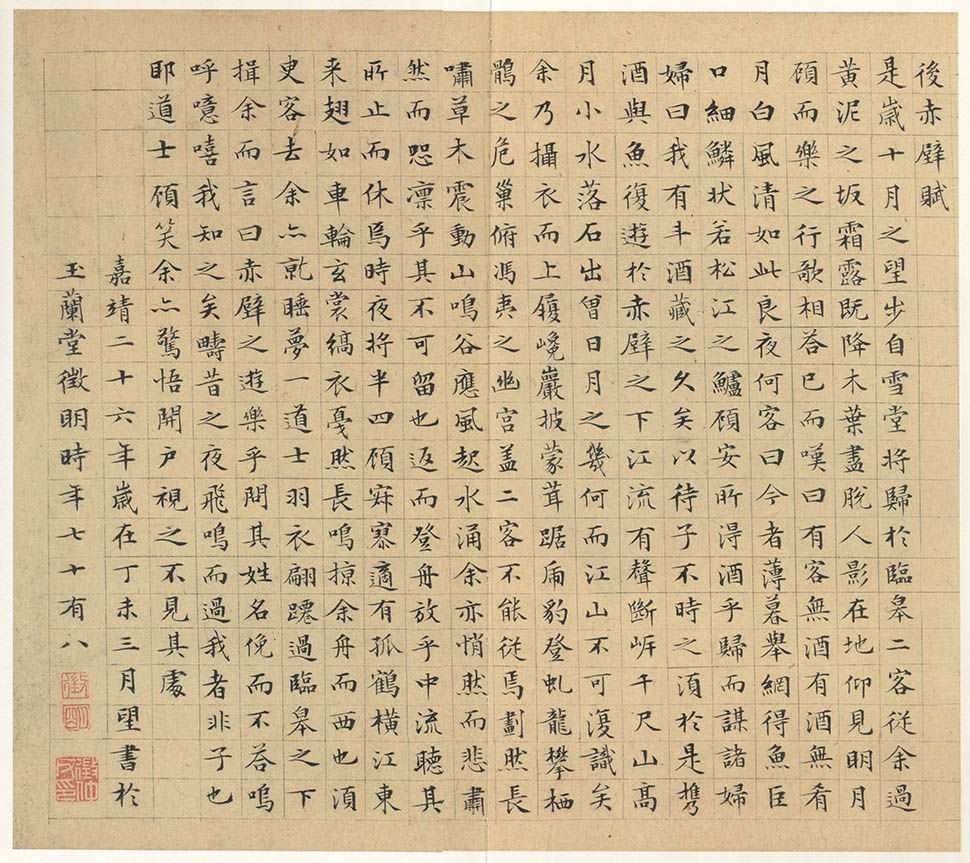 後赤壁賦
是歲十月之望步自雪堂將歸於臨皋二客從余過
黃泥之坂霜露既降木葉盡脫人影在地仰見明月
顧而樂之行歌相答已而嘆曰有客無酒有酒無肴
月白風清如此良夜何客曰今者薄暮舉網得魚巨
口細鱗狀若松江之鱸顧安所得酒乎歸而謀諸婦
婦曰我有斗酒藏之久矣以待子不時之須於是攜
酒與魚復遊於赤壁之下江流有聲斷岸千尺山高
月小水落石出曾日月之幾何而江山不可復識矣
余乃攝衣而上履巉巖披蒙茸踞虎豹登虬龍攀栖
鶻之危巢俯馮夷之幽宮蓋二客不能從焉劃然長
嘯草木震動山鳴谷應風起水涌余亦悄然而悲肅
然而恐凛乎其不可留也返而登舟放乎中流聽其
所止而休焉時夜將半四顧寂寥適有孤鶴橫江東
来翅如車輪玄裳縞衣戛然長鳴掠余舟而西也須
臾客去余亦就睡夢一道士羽衣翩躚過臨皋之下
揖余而言曰赤壁之遊樂乎問其姓名俛而不答嗚
呼噫嘻我知之矣疇昔之夜飛鳴而過我者非子也
耶道士顧笑余亦驚悟開戶視之不見其處
嘉靖二十六年歲在丁未三月望書於
玉蘭堂徵明時年七十有八
徵明